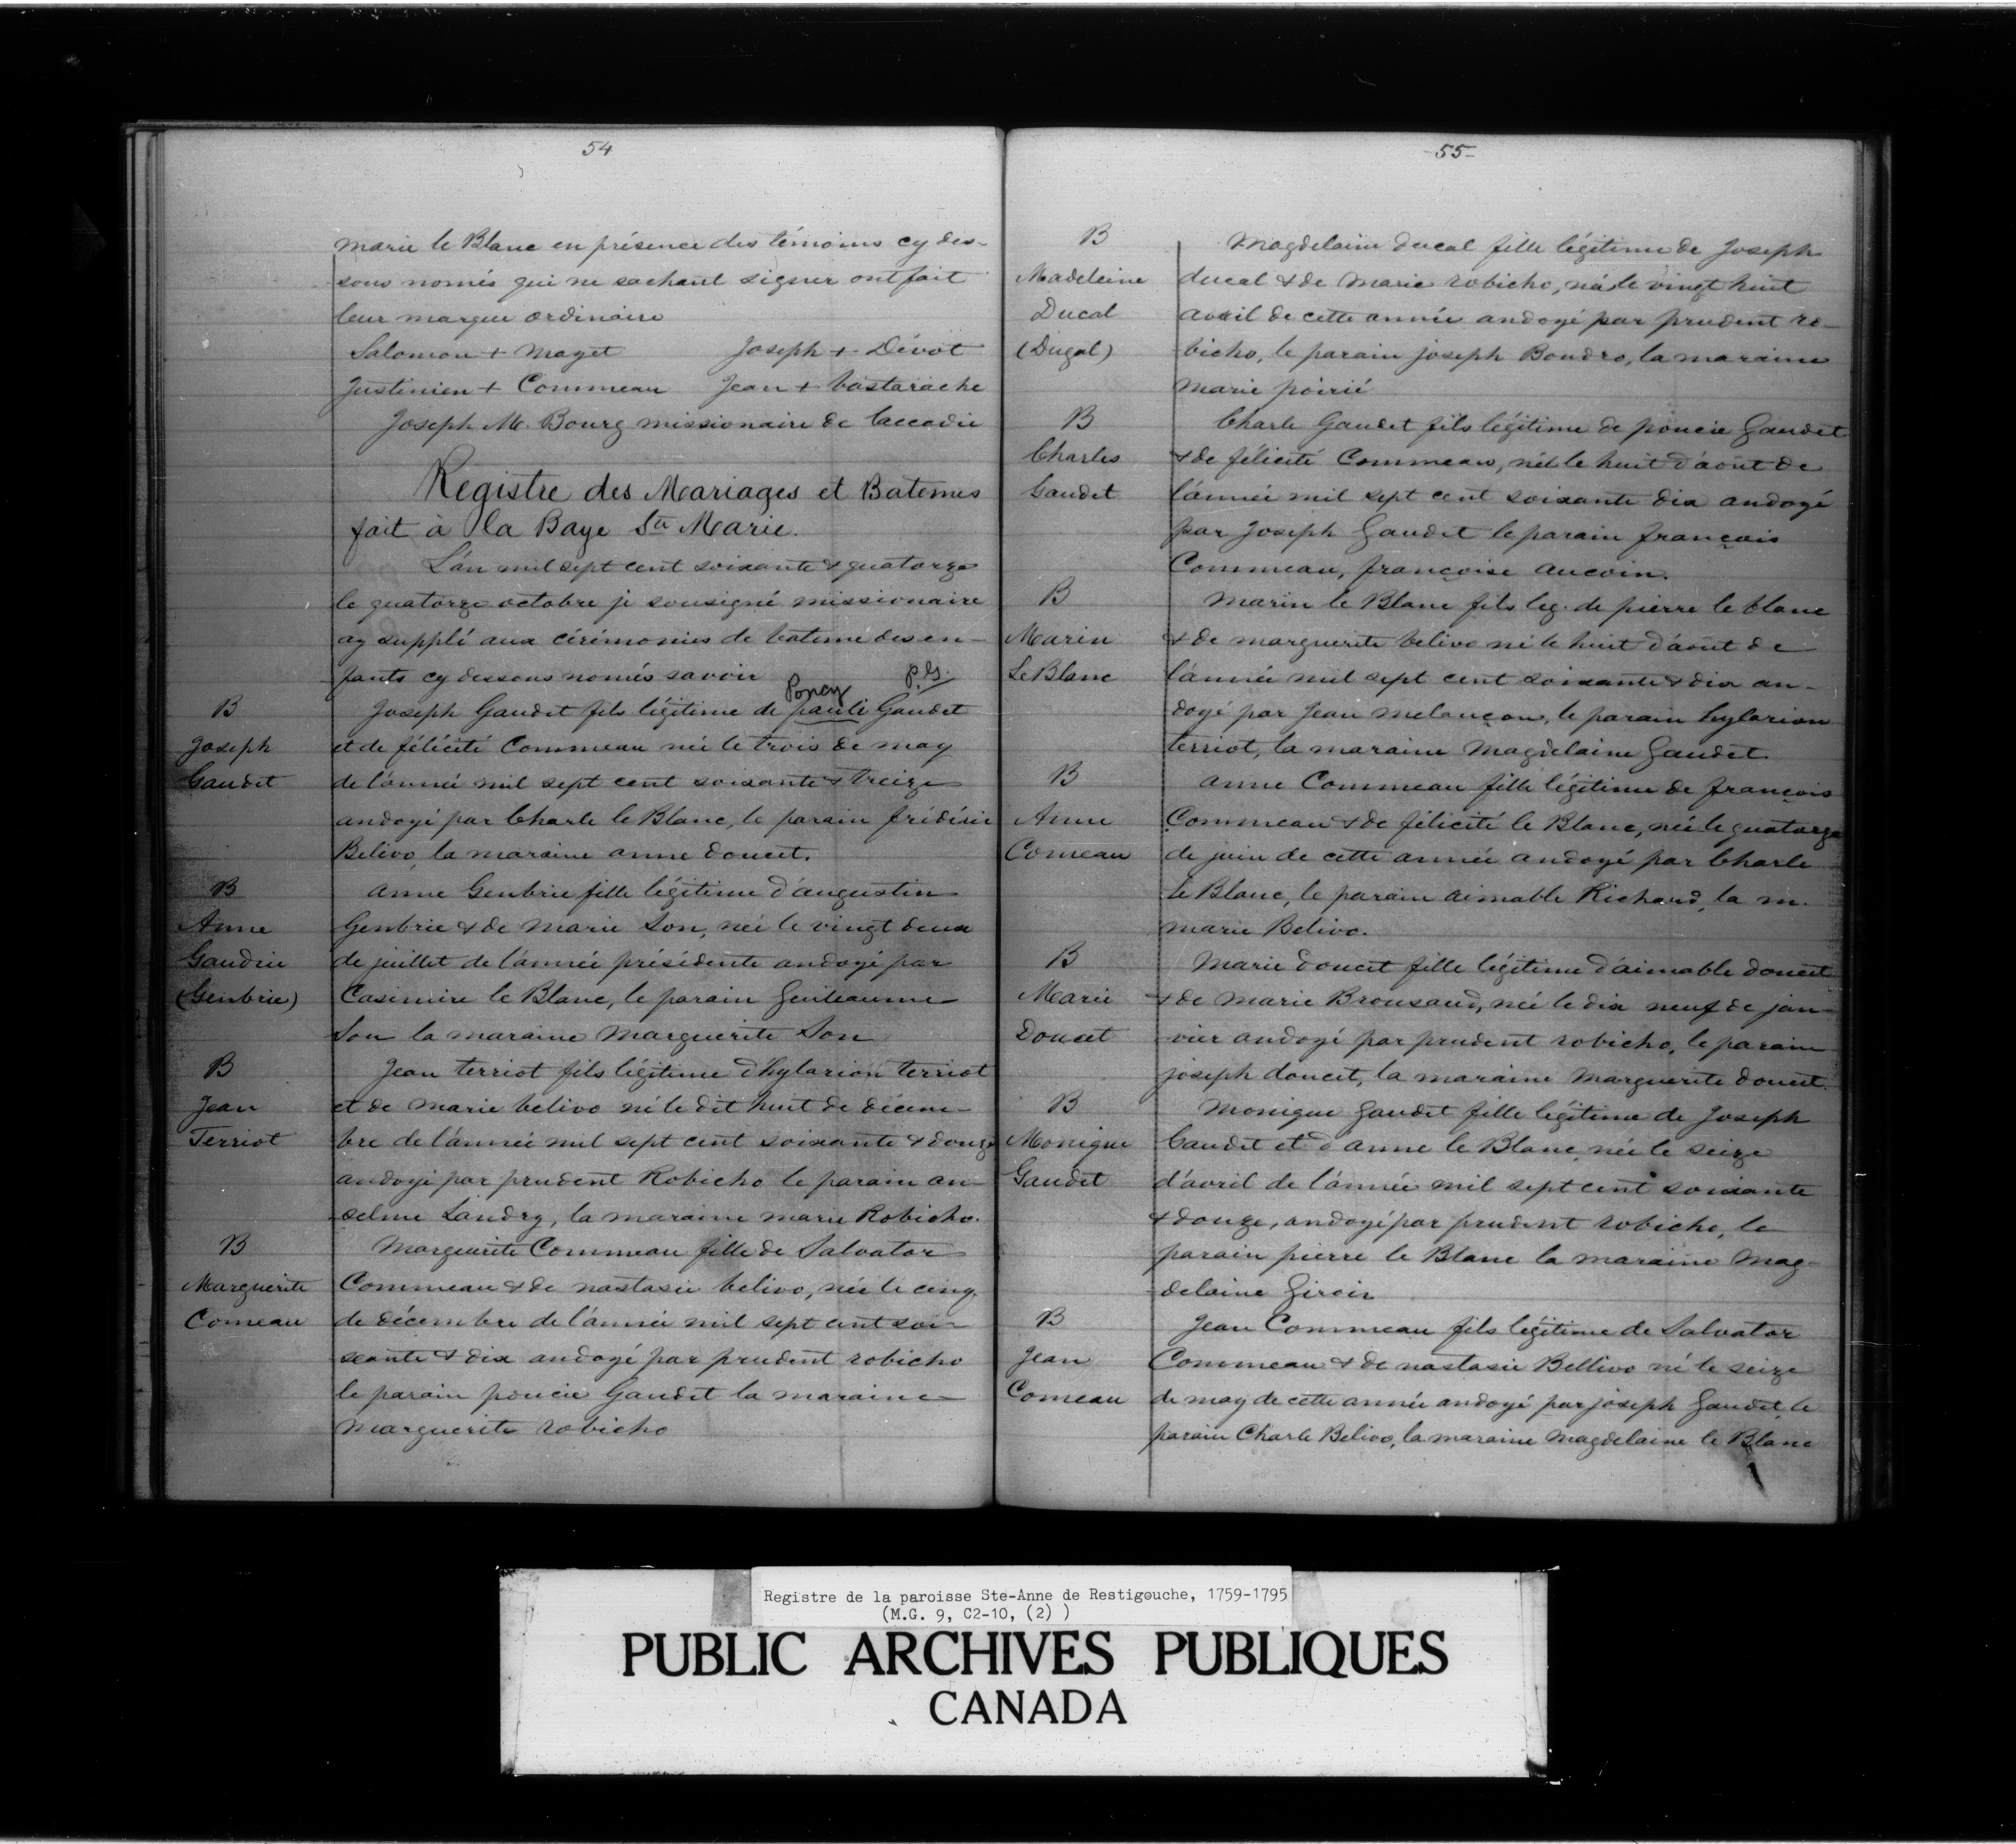 54
marie le Blanc en présence des témoins cy des-
sous només qui ne sachant signer ont fait
leur marque ordinaire
Salomon + Mayet Joseph + Dévot
Justinien + Commeau Jean + bastarache
Joseph M. Bourg missionaire de laccadie
Registre des Mariages et Batemes
fait à la Baye Ste Marie.
L'an mil sept cent soixante & quatorze
le quatorze octobre je sousigné missionaire
ay supplé aux cérémonies de bateme des en-
fants cy dessous només savoir
Poncy P.G.
B
Joseph Gaudet fils légitime de pauli Gaudet
Joseph
et de félécité Commeau née le trois de may
Gaudet
de l'année mil sept cent soixante & treize
andoyé par Charle le Blanc, le parain frédéric
Belivo, la maraine anne doucet.
B
anne Genbrie fille légitime d'augustin
Anne
Genbrie & de Marie Son, née le vingt deux
Gaudrie
de juillet de l'année présidente andoyé par
(Genbrie)
Casimire le Blanc, le parain Guileaume
Son la maraine Marguerite Son
B
Jean terriot fils légitime d'hylarion terriot
Jean
et de Marie belivo né le dit huit de décem-
Terriot
bre de l'année mil sept cent soixante & douze
andoyé par prudent Robicho le parain an-
selme Landry, la maraine marie Robicho.
B
Marguerite Commeau fille de Salvator
Marguerite
Commeau & de nastasie belivo, née le cinq
Comeau
de décembre de l'année mil sept cent soi-
xante & dix andoyé par prudent robicho
le parain poncie Gaudet la maraine
Marguerite robicho
-55-
B
Magdelaine ducal fille légitime de Joseph
Madeleine
ducal & de Marie robicho, née le vingt huit
Ducal
avril de cette année andoyé par prudent ro-
(Dugal)
bicho, le parain joseph Boudro, la maraine
marie poirié
B
Charle Gaudet fils légitime de poncie Gaudet
Charles
& de félicité Commeau, né le huit d'août de
Gaudet
l'année mil sept cent soixante dix andoyé
par Joseph Gaudet le parain françois
Commeau, françoise aucoin.
B
Marin le Blanc fils leg. de pierre le blanc
Marin
& de marguerite belivo né le huit d'août de
LeBlanc
l'année mil sept cent soixante & dix an-
doyé par Jean melançon, le parain hylarion
terriot, la maraine Magdelaine Gaudet
B
anne Commeau fille légitime de françois
Anne
Commeau & de félicité le Blanc, née le quatorze
Comeau
de juin de cette année andoyé par Charle
le Blanc, le parain aimable Richard, la m.
marie Belivo.
B
Marie doucet fille légitime d'aimable doucet
Marie
& de Marie Brousard, née le dix neuf de jan-
Doucet
vier andoyé par prudent robicho, le parain
joseph doucet, la maraine Marguerite doucet.
B
Monique Gaudet fille légitime de Joseph
Monique
Gaudet et d'anne le Blanc, née le seize
Gaudet
d'avril de l'année mil sept cent soixante
& douze, andoyé par prudent robicho, le
parain pierre le Blanc la maraine Mag-
delaine Giroir
B
Jean Commeau fils légitime de Salvator
Jean
Commeau & de nastasie Bellivo né le seize
Comeau
de may de cette année andoyé par joseph Gaudet, le
parain Charle Belivo, la maraine Magdelaine le Blanc
Registre de la paroisse Ste-Anne de Restigouche, 1759-1795
(M.G. 9, C2-10, (2) )
PUBLIC ARCHIVES PUBLIQUES
CANADA